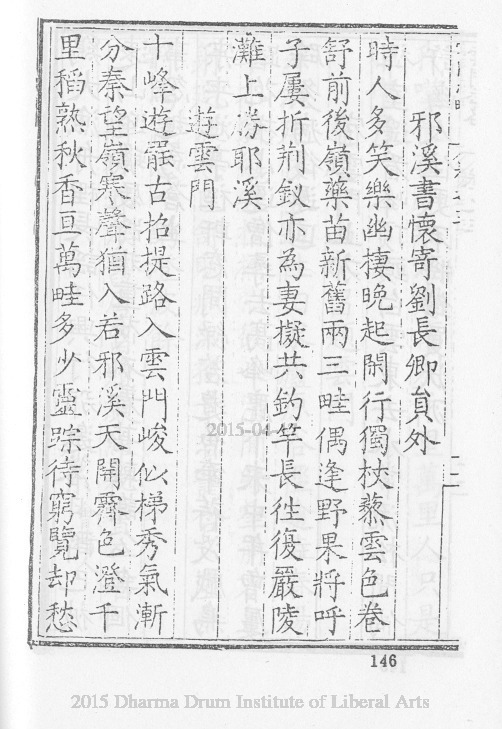 邪溪書懷寄劉長卿員外
時人多笑樂幽棲晚起閑行獨杖藜雲色卷
舒前後嶺藥苗新舊兩三畦偶逢野果將呼
子屢折荆釵亦為妻擬共釣竿長徃復嚴陵
灘上勝耶溪
遊雲門
十峰遊罷古招提路入雲門峻似梯秀氣漸
分秦望嶺寒聲猶入若邪溪天開霽色澄千
里稻熟秋香亘萬畦多少靈踪待窮覽却愁
146
2015-04-
2015 Dharma Drum Institute of Liberal Arts